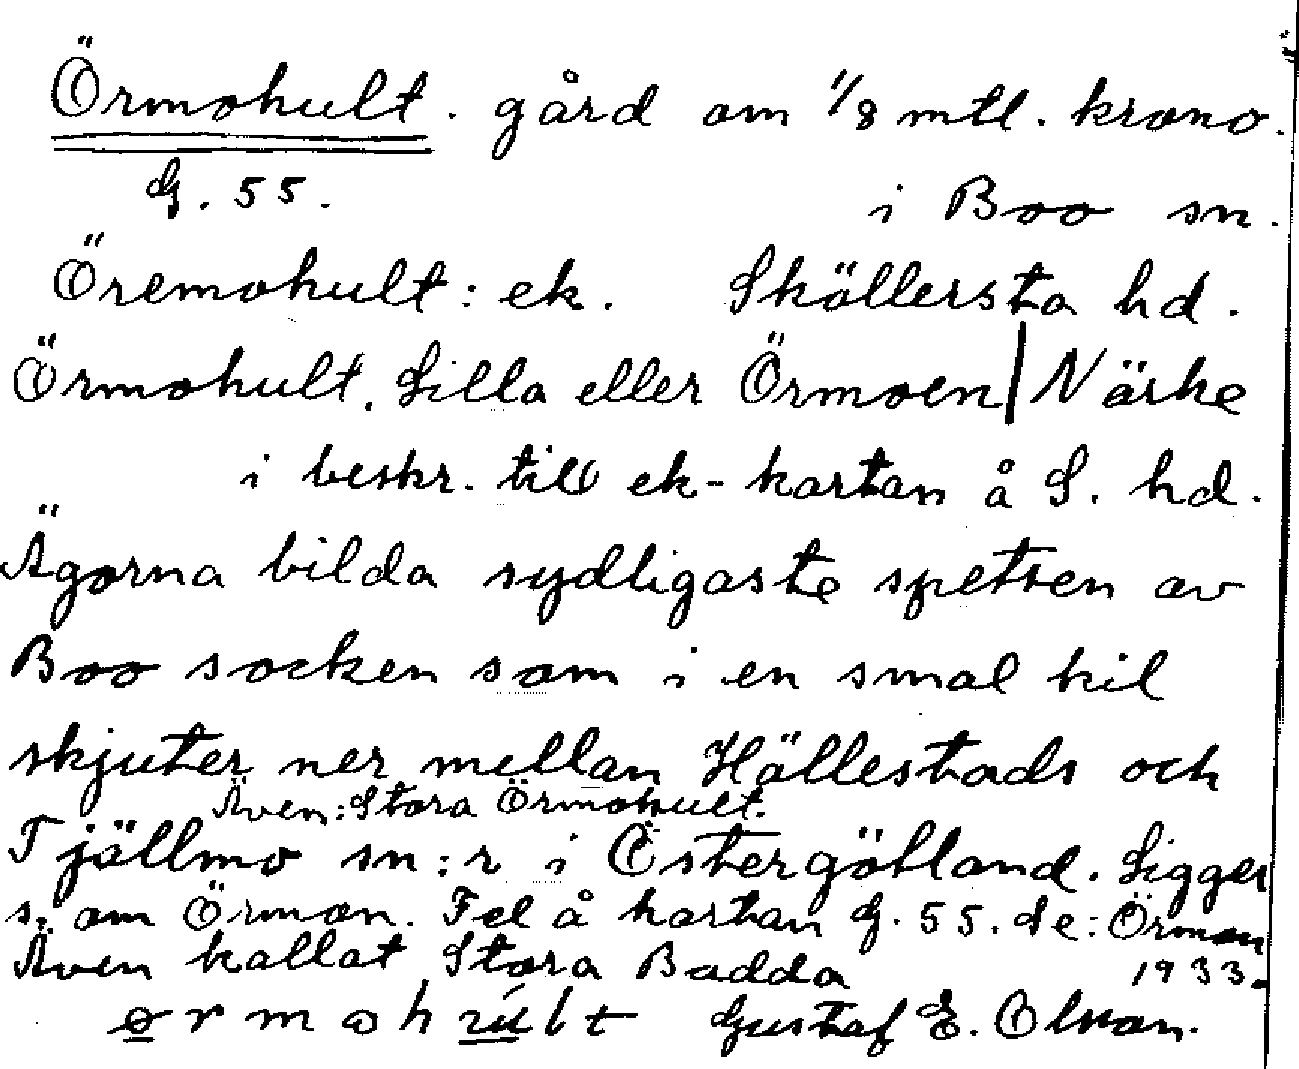 Örmohult. gård om 1/8 mtl. krono.
G. 55. i Boo sn.
Öremohult: ek. Sköllersta hd.
Örmohult, Lilla eller Örmoen | Närke
i beskr. till ek-kartan å S. hd.
Ägorna bilda sydligaste spetsen av
Boo socken som i en smal kil
skjuter ner mellan Hällestads och
Även: Stora Örmohult.
Tjällmo sn:r i Östergötland. Ligger
s. om Örmon. Fel å kartan G. 55. Se: Örmon
Även kallat Stora Badda 1933.
Gustaf E. Olsson.